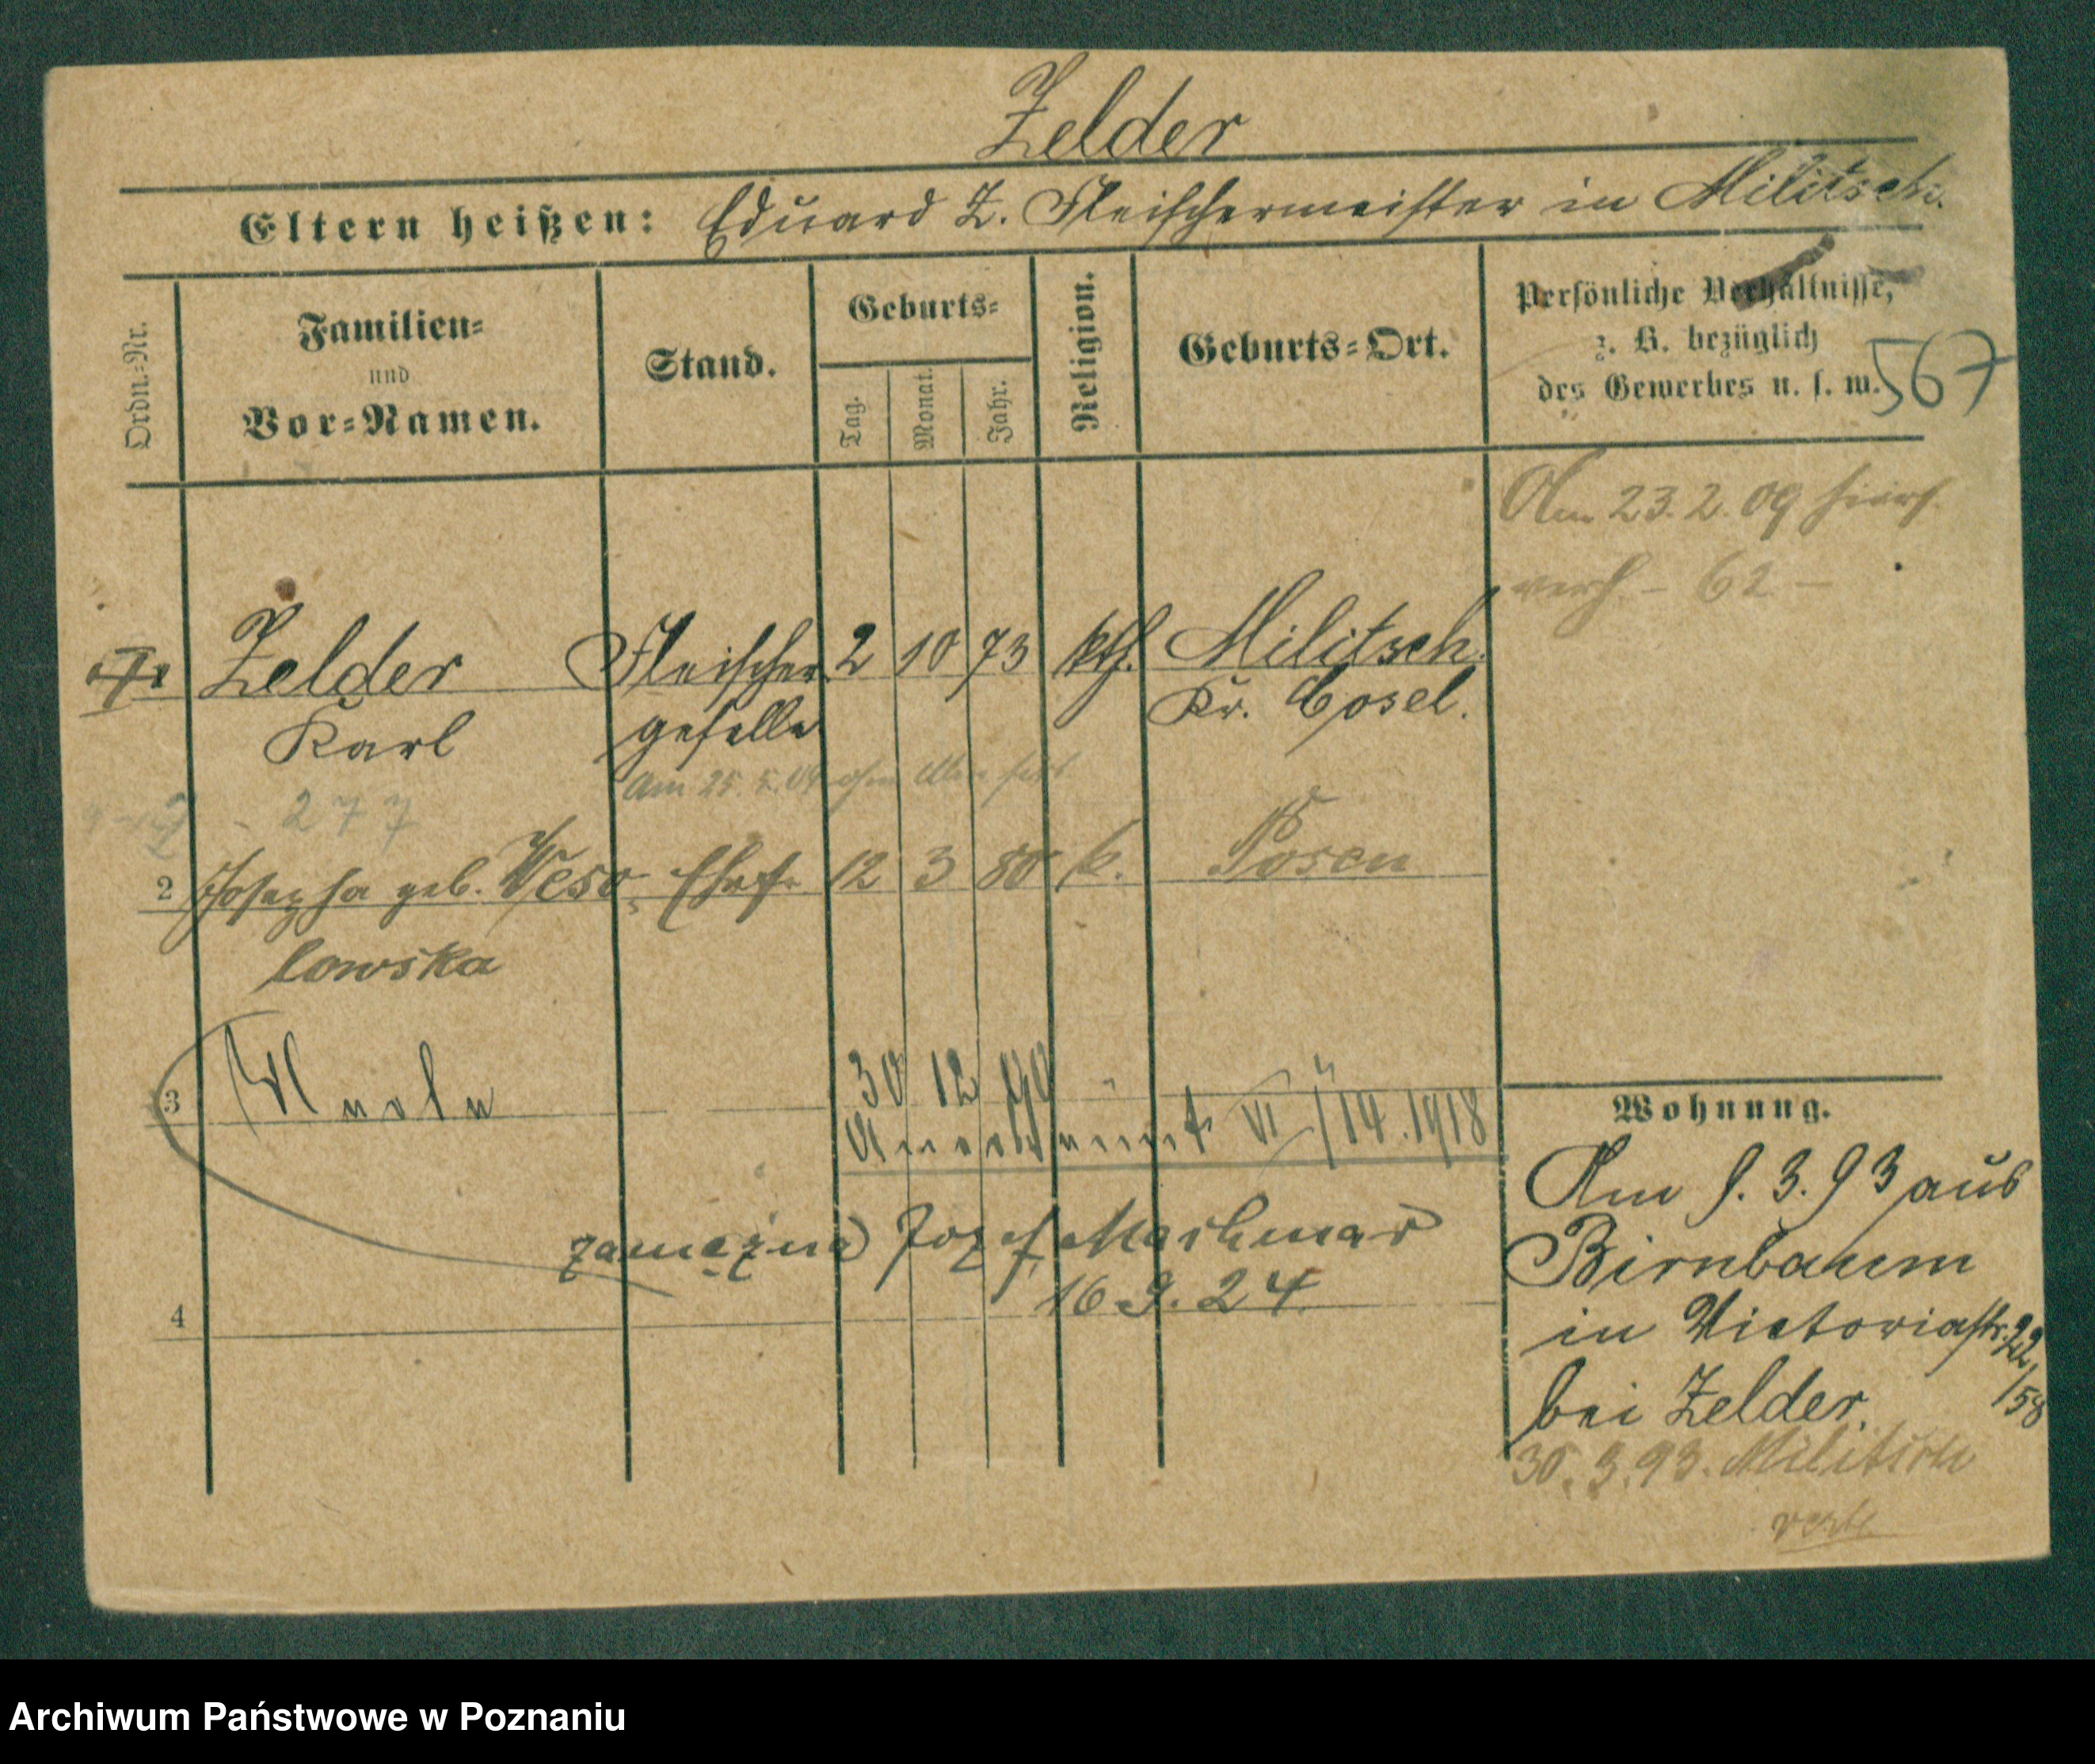 Zelder
Eltern heißen: Eduard Z. Fleischermeister in Militsch.
Ordn.-Nr.
Familien-
und
Vor-Namen.
Stand.
Geburts-
Tag.
Monat.
Jahr.
Religion.
Geburts-Ort.
Persönliche Verhältnisse,
z. B. bezüglich
des Gewerbes u. s. w.
567
Am 23.2.09
verh. - 62 -
Zelder Fleischer 2 10 73 kth. Militsch.
Karl geselle Kr. Cosel.
Am 25.
277
2 Josepha geb. Weso- Ehefr. 12 3 80 k. Posen
lowska
3 30 12
VI / 14. 1918
zamężna Jozef
16 9. 24.
4
Wohnung.
Am 9. 3. 93 aus
Birnbaum
in Victoriastr. 22/58
bei Zelder.
30. 3. 93. Militsch
verte
Archiwum Państwowe w Poznaniu